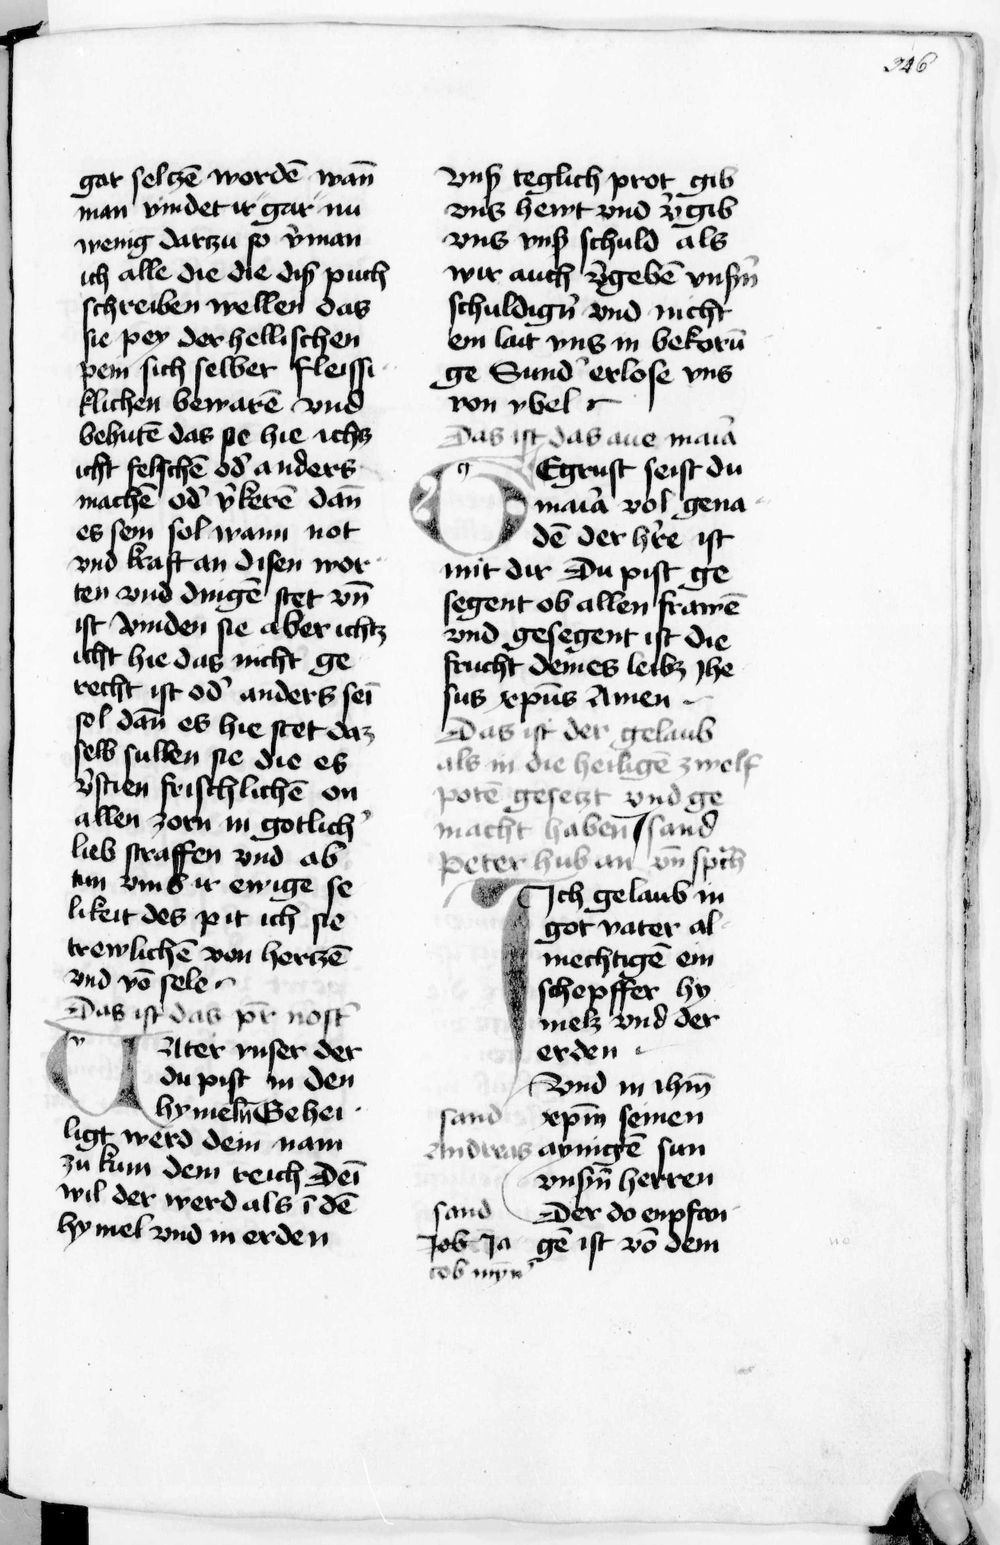 246
gar selczē wordē wan̄
man vindet ir gar nu
wenig darzu so v̾man
ich alle die die diß puch
schreiben wellen das
sie pey der hellischen
pein sich selber fleissi
klichen bewarē vnd
behutē das sie hie ichtz
icht felschē od̾ anders
machē od̾ v̾kerē dan̄
es sein sol wann not
vnd kraft an disen wor
ten vnd dingē stet vn̄
ist vinden sie aber ichtz
icht hie das nicht ge
recht ist od̾ anders sei̅
sol dan̄ es hie stet daz
selb sullen sie die es
v̾stien frischlichē on
allen zorn in gotlich̾
lieb straffen vnd ab
tun vmb ir ewige se
likeit des pit ich sie
trewlichē von hertzē
vnd vō sele
Das ist das pr̄ nost̾
VAter vnser der
du pist in den
hymeln̄ Gehei
ligt werd dein nam
zu kum dein reich Dei̅
wil der werd als i̅ dē
hymel vnd in erden
vnß teglich prot gib
vns hewt vnd v̾gib
vns vnß schuld als
wir auch v̾gebē vnsm̄
schuldign̾ vnd nicht
ein lait vns in bekorū
ge Sund̾ erlose vns
von vbel
Das ist das aue mar̄ia
GEgrust seist du
mar̄ia vol gena
dē der hr̾e ist
mit dir Du pist ge
segent ob allen frawē
vnd gesegent ist die
frucht deines leibz Jhe
sus xpūs Amen
Das ist der gelaub
als in die heiligē zwelf
potē gesetzt vnd ge
macht haben sand
Peter hub an vn̄ sprach
Ich gelaub in
got vater al
mechtigē ein
schepffer hy
melz vnd der
erden
Vnd in ihm̄
sand xpm̄ seinen
Andreas aynigē sun
vnsm̄ herren
sand Der do enpfan
Job Ja gē ist vō dem
cob